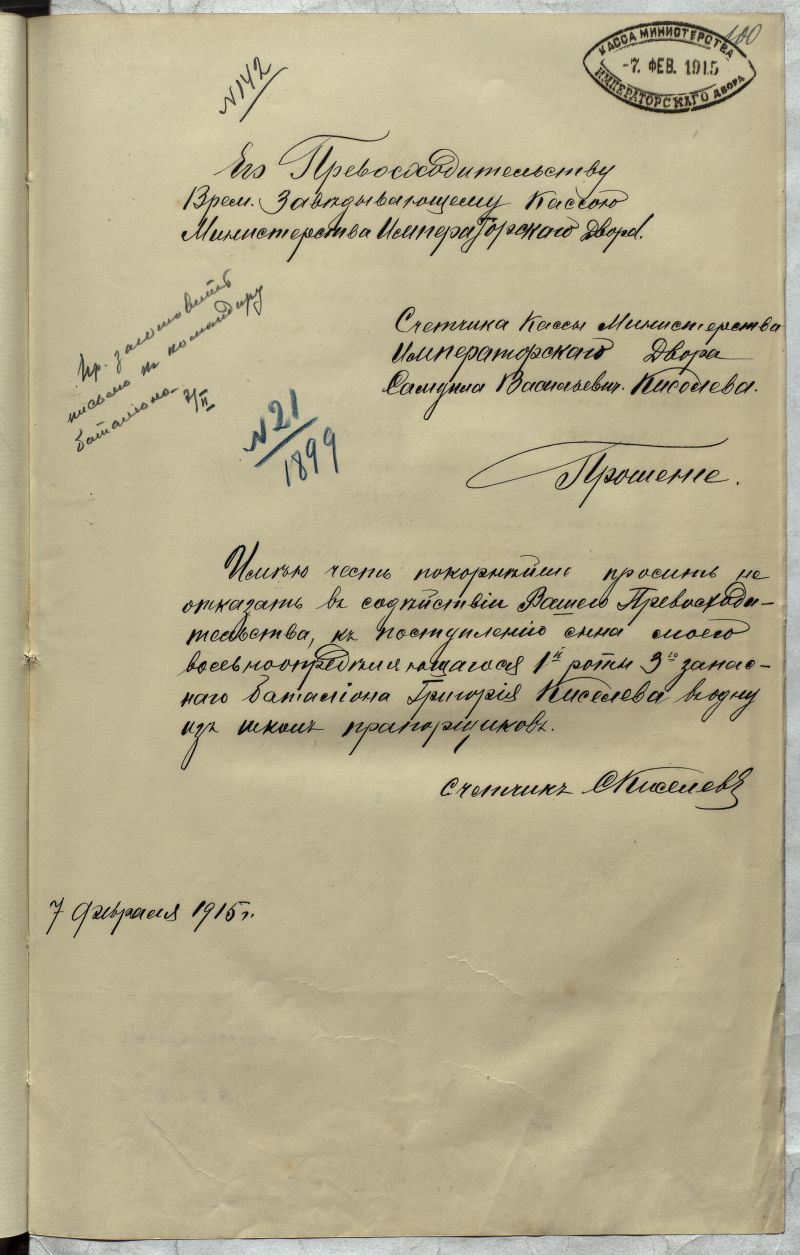 100
КАССА МИНИСТЕРСТВА
-7. ФЕВ. 1915
ИМПЕРАТОРСКАГО ДВОРА
№142
Его Превосходительству
Врем. Завѣдывающему Кассою
Министерства Императорскаго Двора.
Пр. заготовить
письмо къ командиру
баталіона
7/II
Счетчика Кассы Министерства
Императорскаго Двора
Самуила Васильевич. Киселева.
№21
1899
Прошеніе.
Имѣю честь покорнѣйше просить не
отказать въ содѣйствіи Вашего Превосходи-
тельства, къ поступленію сына моего
вольноопредѣляющагося 1й роты 3го запас-
наго баталіона Григорія Киселева въ одну
изъ школъ прапорщиковъ.
Счетчикъ СКиселевъ
7 февраля 1915 г.